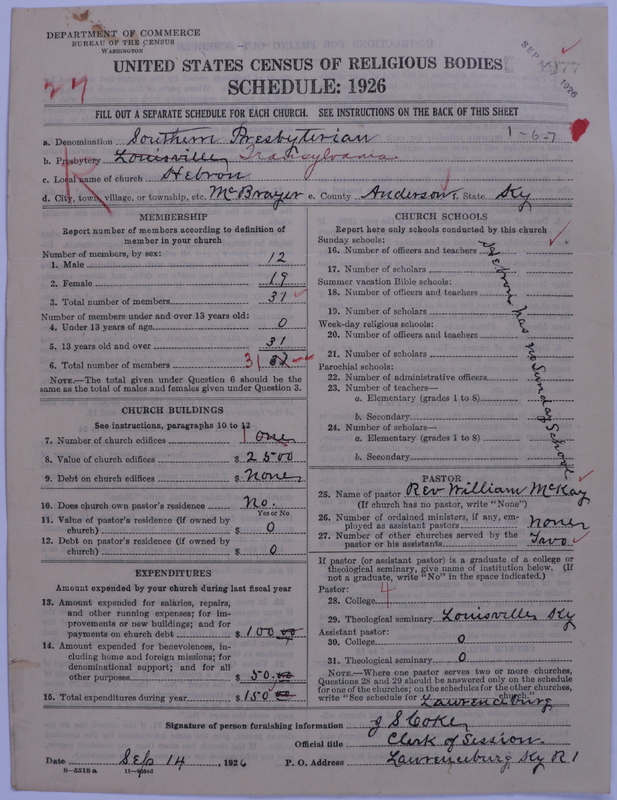 DEPARTMENT OF COMMERCE
BUREAU OF THE CENSUS
WASHINGTON
UNITED STATES CENSUS OF RELIGIOUS BODIES
SCHEDULE: 1926
SEP 1926
27
FILL OUT A SEPARATE SCHEDULE FOR EACH CHURCH. SEE INSTRUCTIONS ON THE BACK OF THIS SHEET
1-6-7
a. Denomination Southern Presbyterian
b. Presbytery Louisville, Transylvania
c. Local name of church Hebron
d. City, town, village, or township, etc. McBrayer e. County Anderson f. State Ky
MEMBERSHIP
Report number of members according to definition of
member in your church
Number of members, by sex:
1. Male 12
2. Female 19
3. Total number of members 31
Number of members under and over 13 years old:
4. Under 13 years of age 0
5. 13 years old and over 31
6. Total number of members 31 32
NOTE.—The total given under Question 6 should be the
same as the total of males and females given under Question 3.
CHURCH BUILDINGS
See instructions, paragraphs 10 to 12
7. Number of church edifices 1 one
8. Value of church edifices $ 2500
9. Debt on church edifices $ None
10. Does church own pastor's residence No.
Yes or No
11. Value of pastor's residence (if owned by
church) $ 0
12. Debt on pastor's residence (if owned by
church) $ 0
EXPENDITURES
Amount expended by your church during last fiscal year
13. Amount expended for salaries, repairs,
and other running expenses; for im-
provements or new buildings; and for
payments on church debt $ 100 00
14. Amount expended for benevolences, in-
cluding home and foreign missions; for
denominational support; and for all
other purposes $ 50 00
15. Total expenditures during year $ 150 00
CHURCH SCHOOLS
Report here only schools conducted by this church
Sunday schools:
16. Number of officers and teachers
17. Number of scholars
Summer vacation Bible schools:
18. Number of officers and teachers
19. Number of scholars
Week-day religious schools:
20. Number of officers and teachers
21. Number of scholars
Parochial schools:
22. Number of administrative officers
23. Number of teachers—
a. Elementary (grades 1 to 8)
b. Secondary
24. Number of scholars—
a. Elementary (grades 1 to 8)
b. Secondary
Hebron has no Sunday School
PASTOR
25. Name of pastor Rev William McKay
(If church has no pastor, write "None")
26. Number of ordained ministers, if any, em-
ployed as assistant pastors None
27. Number of other churches served by the
pastor or his assistants Two
If pastor (or assistant pastor) is a graduate of a college or
theological seminary, give name of institution below. (If
not a graduate, write "No" in the space indicated.)
Pastor:
28. College 4
29. Theological seminary Louisville, Ky
Assistant pastor:
30. College 0
31. Theological seminary 0
NOTE.—Where one pastor serves two or more churches,
Questions 28 and 29 should be answered only on the schedule
for one of the churches; on the schedules for the other churches,
write "See schedule for Lawrenceburg church."
Signature of person furnishing information J S Coke,
Official title Clerk of Session.
Date Sep 14, 1926 P. O. Address Lawrenceburg Ky R 1
8-5518 a